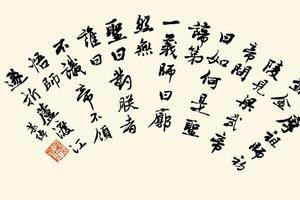 摩祖師初
至金
陵見與武帝
帝問
曰如何是聖
諦第
一義師曰廓
然無
聖曰對朕者
誰曰
不識帝不領
悟師
遂折蘆渡江